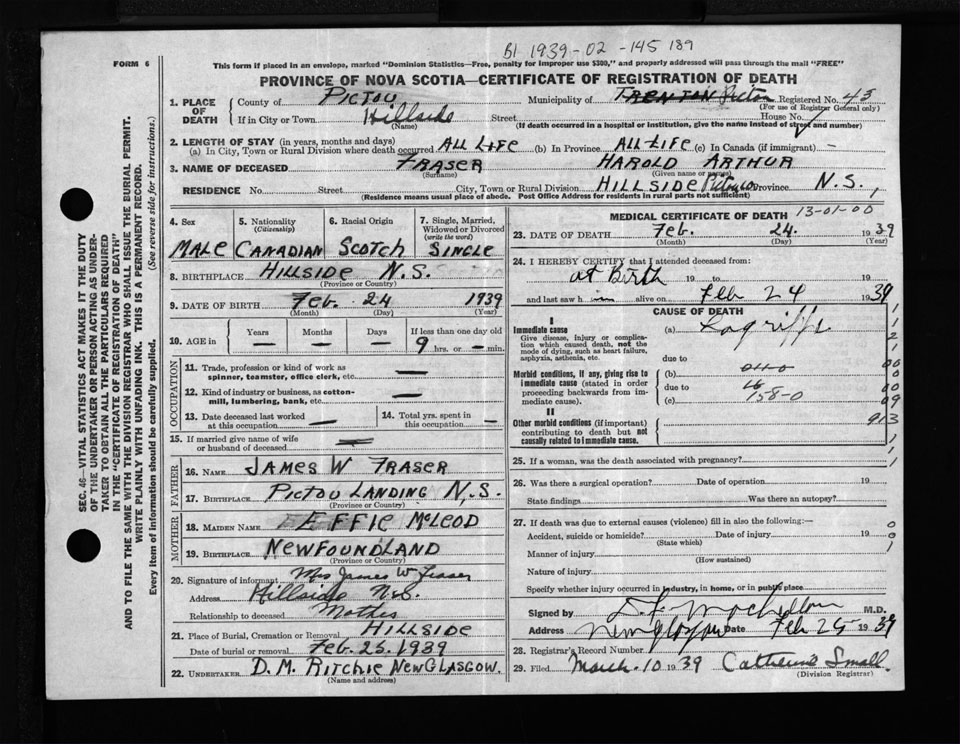 B1 1939-02-145189
FORM 6 This form if placed in an envelope, marked "Dominion Statistics—Free, penalty for improper use $300," and properly addressed will pass through the mail "FREE"
PROVINCE OF NOVA SCOTIA—CERTIFICATE OF REGISTRATION OF DEATH
1. PLACE OF DEATH County of Pictou Municipality of Trenton Pictou Registered No. 43
(For use of Registrar General only)
If in City or Town Hillside Street House No.
(Name) (If death occurred in a hospital or institution, give the name instead of street and number)
2. LENGTH OF STAY (in years, months and days)
(a) In City, Town or Rural Division where death occurred All Life (b) In Province All Life (c) In Canada (if immigrant) —
3. NAME OF DECEASED Fraser Harold Arthur
(Surname) (Given name or names)
RESIDENCE No. Street City, Town or Rural Division Hillside Pictou Co Province N.S.
(Residence means usual place of abode. Post Office Address for residents in rural parts not sufficient)
SEC. 46—VITAL STATISTICS ACT MAKES IT THE DUTY
OF THE UNDERTAKER OR PERSON ACTING AS UNDER-
TAKER TO OBTAIN ALL THE PARTICULARS REQUIRED
IN THE "CERTIFICATE OF REGISTRATION OF DEATH"
AND TO FILE THE SAME WITH THE DIVISION REGISTRAR WHO SHALL ISSUE THE BURIAL PERMIT.
WRITE PLAINLY WITH UNFADING INK. THIS IS A PERMANENT RECORD.
Every item of information should be carefully supplied. (See reverse side for instructions.)
4. Sex 5. Nationality 6. Racial Origin 7. Single, Married,
(Citizenship) Widowed or Divorced
(write the word)
Male Canadian Scotch Single
8. BIRTHPLACE Hillside N.S.
(Province or Country)
9. DATE OF BIRTH Feb. 24 1939
(Month) (Day) (Year)
10. AGE in Years Months Days If less than one day old
— — — 9 hrs. or — min.
OCCUPATION
11. Trade, profession or kind of work as
spinner, teamster, office clerk, etc. —
12. Kind of industry or business, as cotton-
mill, lumbering, bank, etc. —
13. Date deceased last worked 14. Total yrs. spent in
at this occupation — this occupation —
15. If married give name of wife
or husband of deceased —
FATHER
16. NAME James W Fraser
17. BIRTHPLACE Pictou Landing N.S.
(Province or Country)
MOTHER
18. MAIDEN NAME Effie McLeod
19. BIRTHPLACE Newfoundland
(Province or Country)
20. Signature of informant Mrs James W Fraser
Address Hillside N.S.
Relationship to deceased Mother
21. Place of Burial, Cremation or Removal Hillside
Date of burial or removal Feb. 25. 1939
22. UNDERTAKER D. M. Ritchie New Glasgow.
(Name and address)
MEDICAL CERTIFICATE OF DEATH 13-01-00
23. DATE OF DEATH Feb. 24. 1939
(Month) (Day) (Year)
24. I HEREBY CERTIFY that I attended deceased from:
at Birth 19 to 19
and last saw him alive on Feb 24 1939
CAUSE OF DEATH
I
Immediate cause (a) Lagrippe
Give disease, injury or complica-
tion which caused death, not the
mode of dying, such as heart failure,
asphyxia, asthenia, etc. due to
Morbid conditions, if any, giving rise to (b)
immediate cause (stated in order due to
proceeding backwards from im-
mediate cause). (c) 158-0
II
Other morbid conditions (if important)
contributing to death but not
causally related to immediate cause.
25. If a woman, was the death associated with pregnancy?
26. Was there a surgical operation? Date of operation 19
State findings Was there an autopsy?
27. If death was due to external causes (violence) fill in also the following:—
Accident, suicide or homicide? Date of injury 19
(State which)
Manner of injury
(How sustained)
Nature of injury
Specify whether injury occurred in industry, in home, or in public place
Signed by M.D.
Address New Glasgow Date Feb 25 1939
28. Registrar's Record Number
29. Filed March. 10 1939 Catherine Small
(Division Registrar)